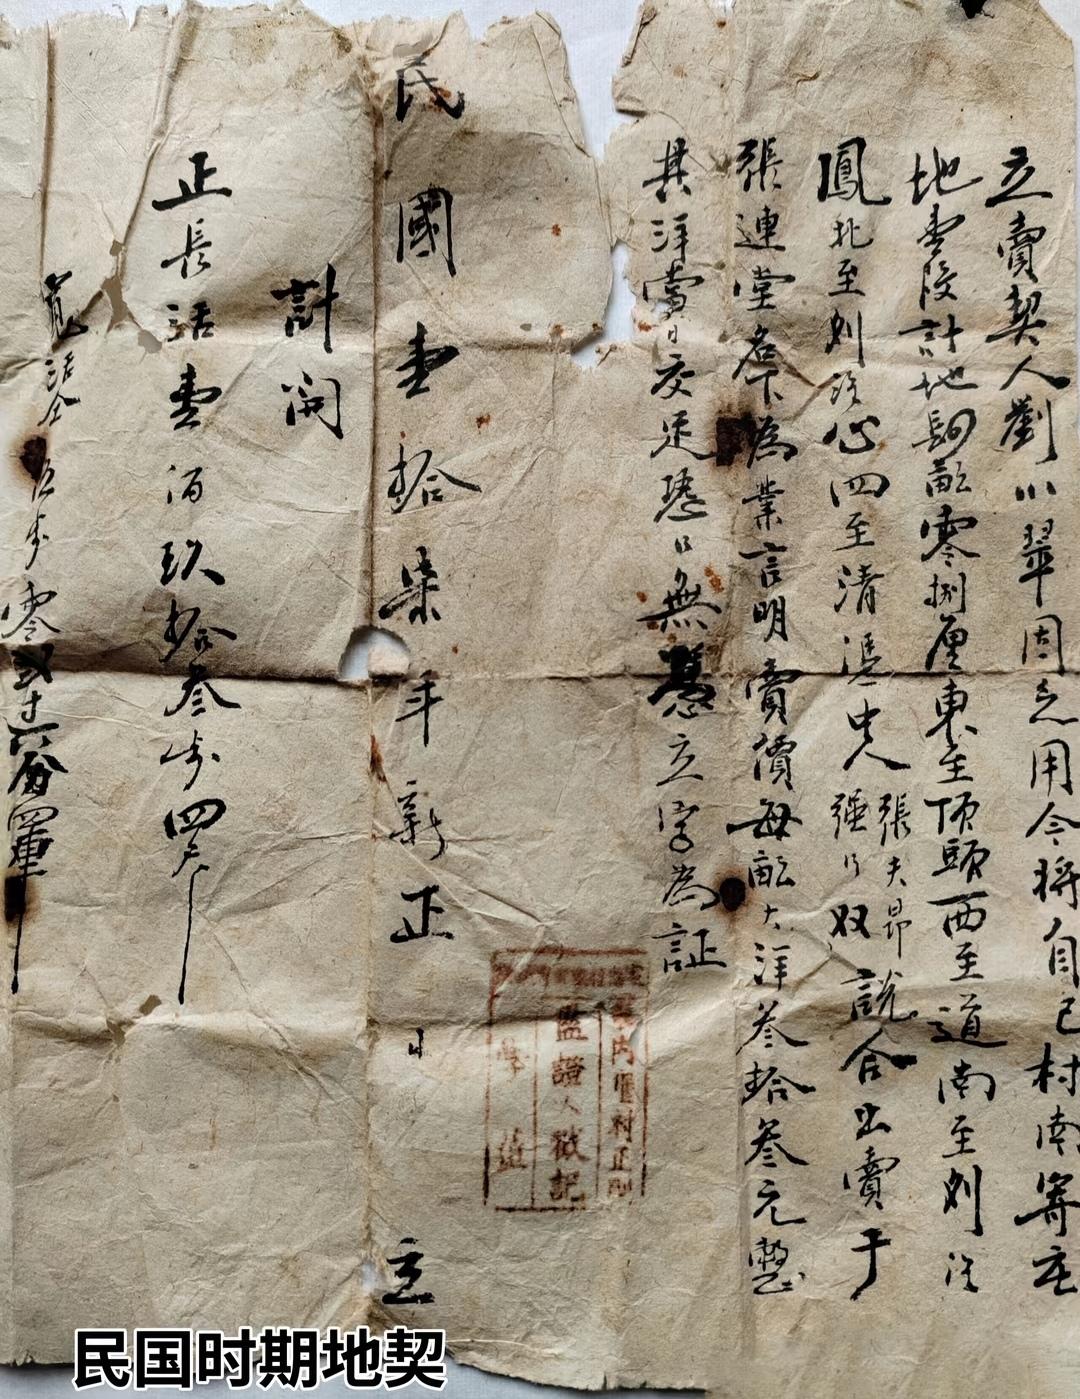 立賣契人劉小翠因乏用今將自己村南寄庄
地壹段計地肆畝零捌厘東至頂頭西至道南至刘
鳳北至刘 心四至清憑中人張夫昂 强 奴說合出賣于
張連堂名下為業言明賣價每畝大洋叁拾叁元整
其洋當日交足恐口無憑立字為証
民國壹拾柒年新正月 立
計開
正長活壹佰玖拾叁步四尺
寬活 伍步零
村正副
監證人戳記
民国时期地契